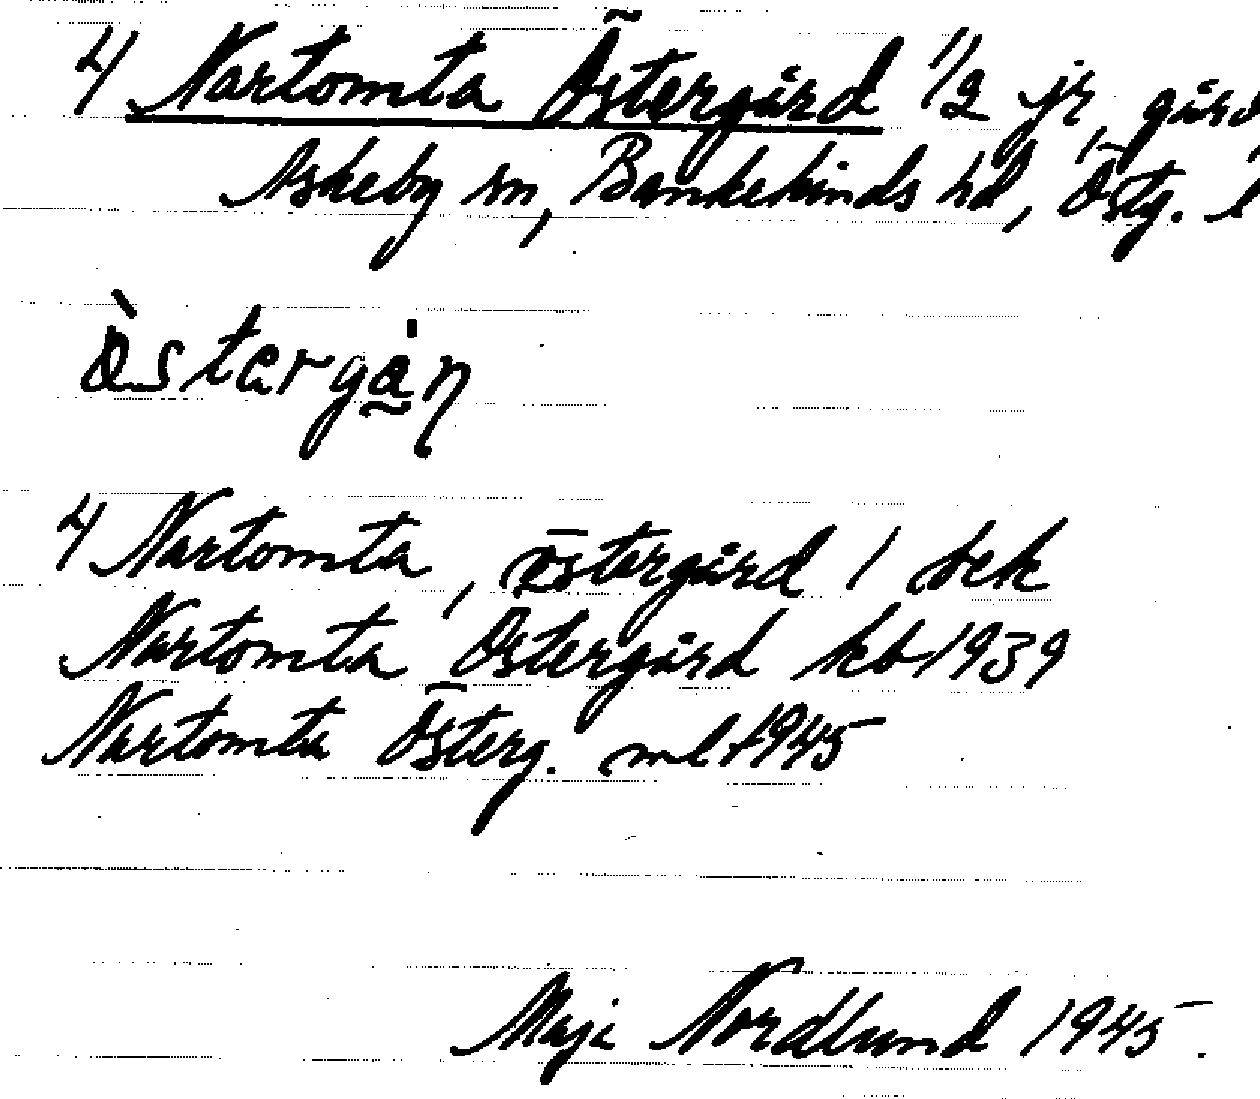 4 Nartomta Östergård 1/2 jr, gård
Askeby sn, Bankekinds hd, Östg. l
òstergån
4 Nartomta, östergård 1 sek
Nartomta Östergård kb 1939
Nartomta Österg. mlt 1945
Maji Nordlund 1945.